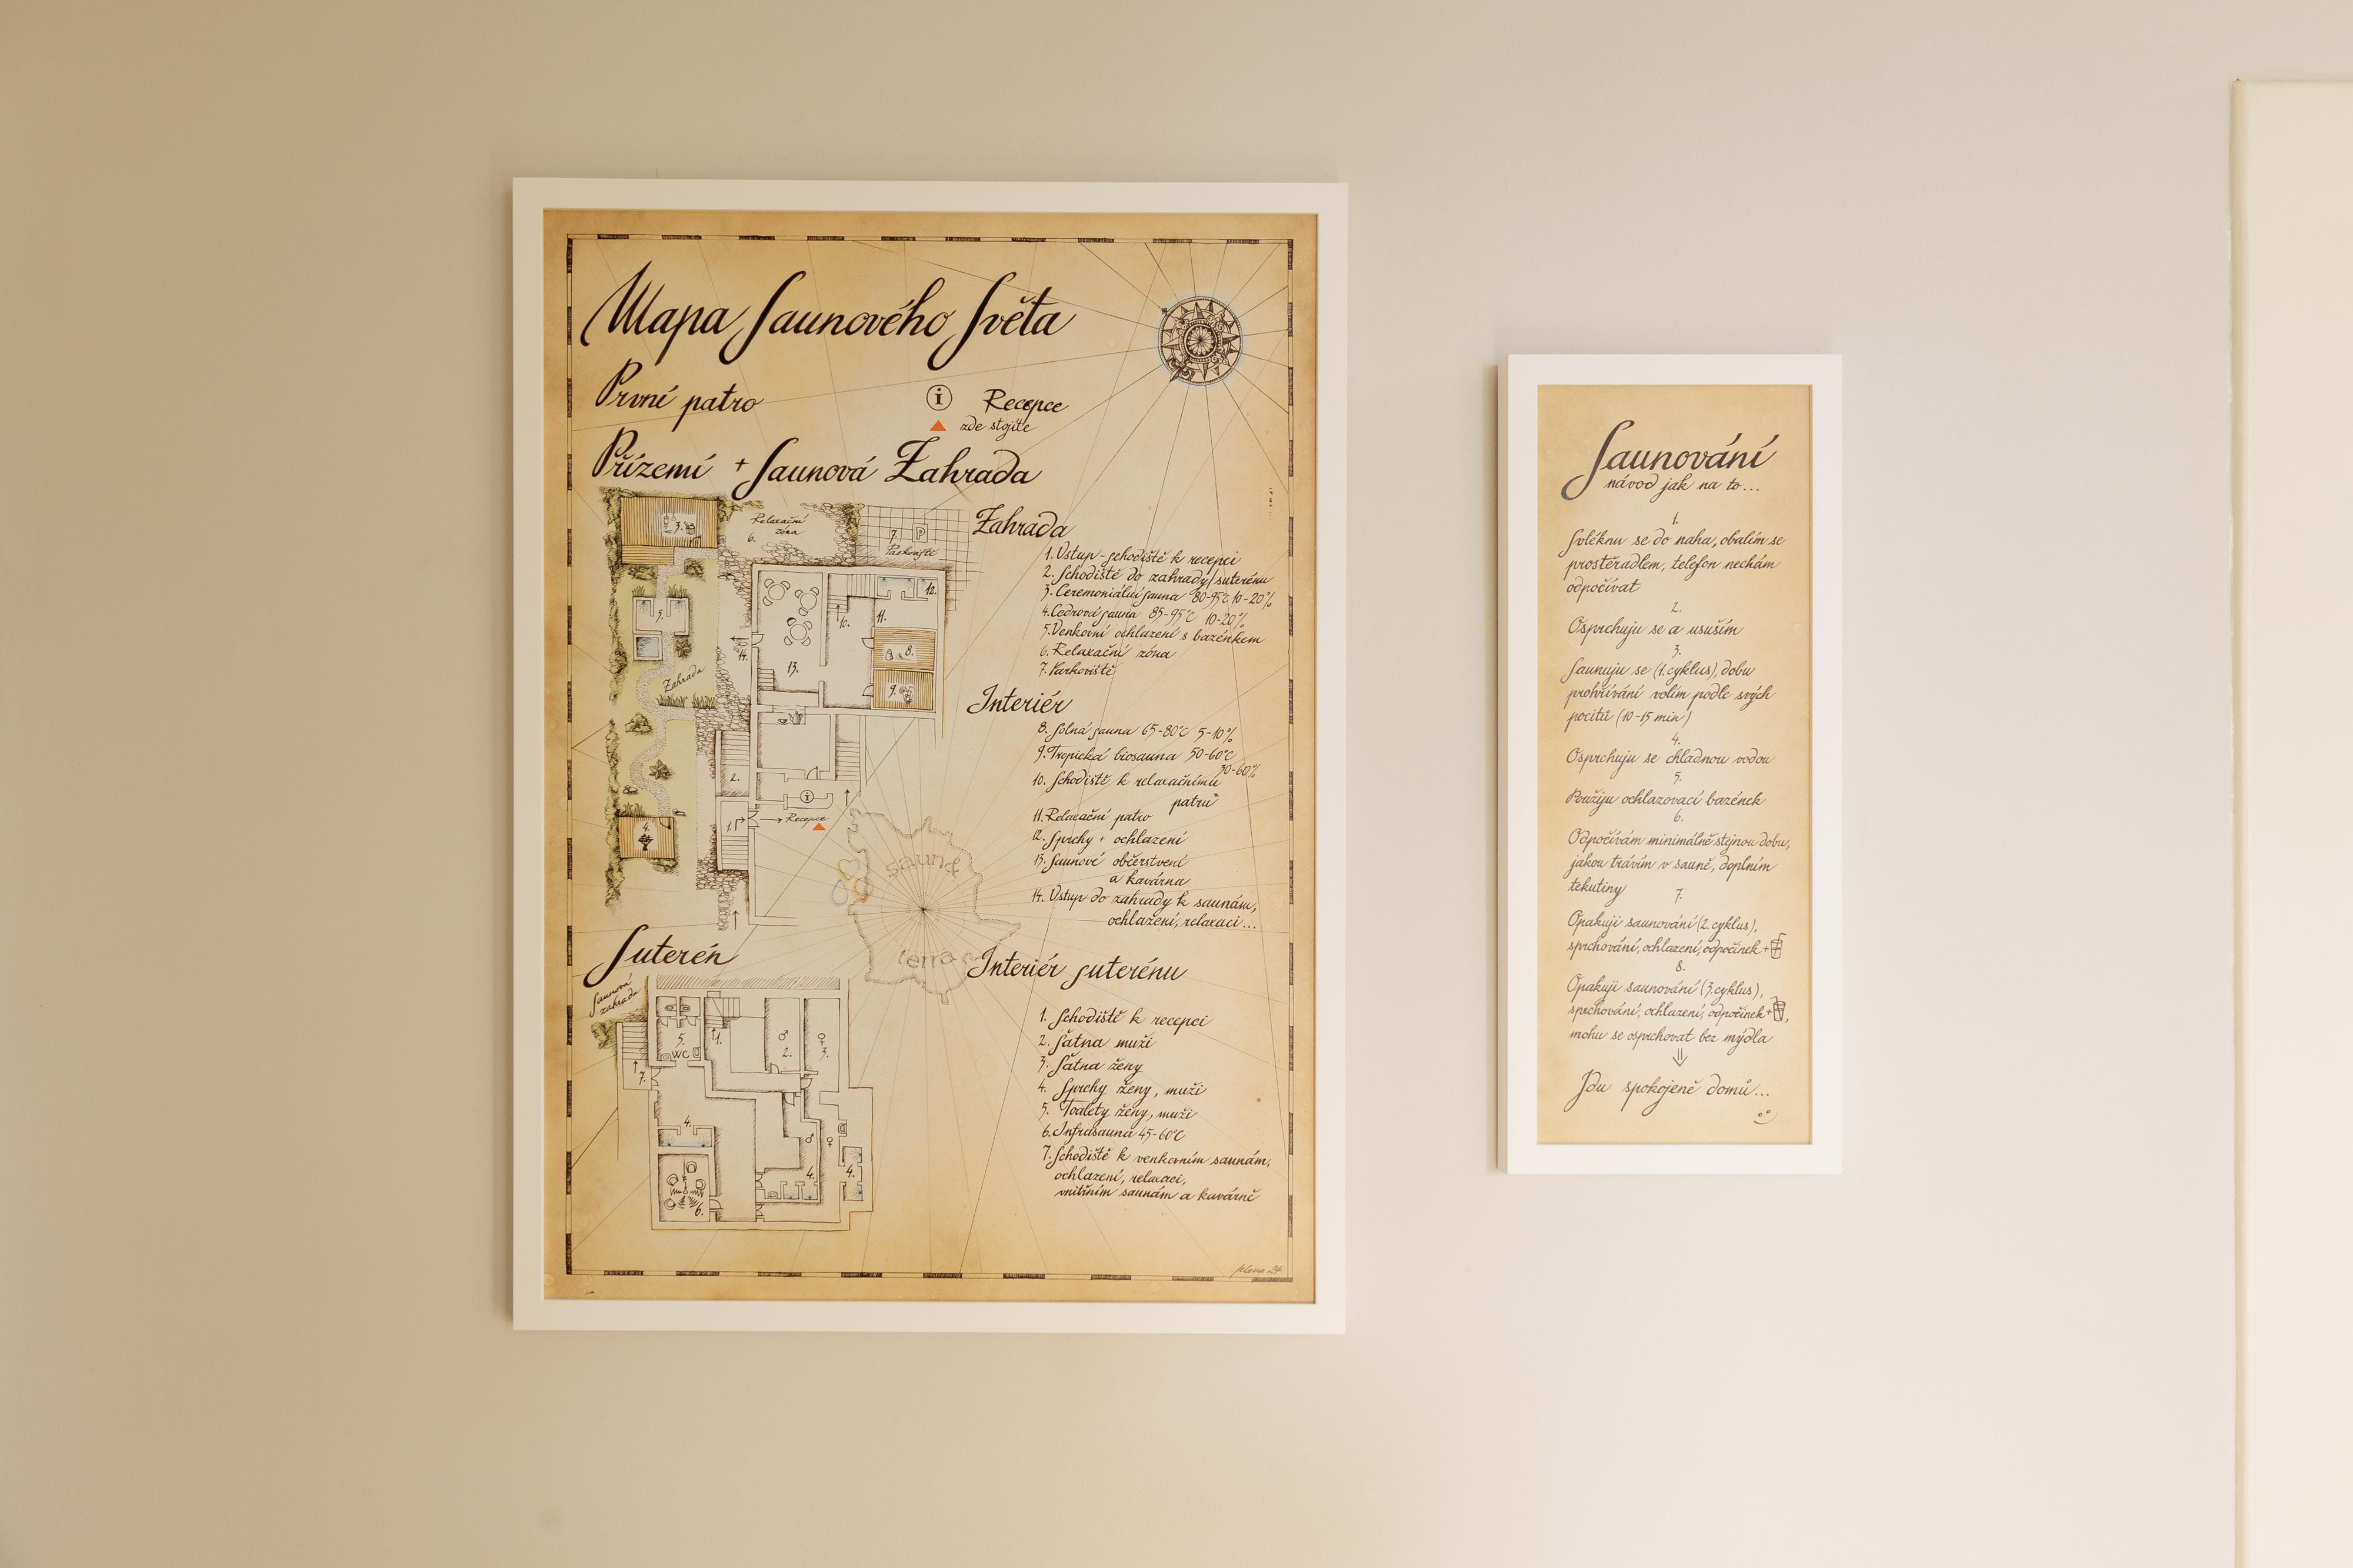 Mapa Saunového Světa
První patro
i Recepce
zde stojíte
Přízemí + Saunová Zahrada
3.
Relaxační
zóna
6.
7. P
Parkoviště
5.
Zahrada
14.
13.
10.
11.
12.
8.
9.
2.
i
1.
Recepce
4.
Zahrada
1. Vstup - schodiště k recepci
2. Schodiště do zahrady/suterénu
3. Ceremoniální sauna 80-95°C 10-20%
4. Cedrová sauna 85-95°C 10-20%
5. Venkovní ochlazení s bazénkem
6. Relaxační zóna
7. Parkoviště
Interiér
8. Solná sauna 65-80°C 5-10%
9. Tropická biosauna 50-60°C
30-60%
10. Schodiště k relaxačnímu
patru
11. Relaxační patro
12. Sprchy + ochlazení
13. Saunové občerstvení
a kavárna
14. Vstup do zahrady k saunám,
ochlazení, relaxaci...
sauna
terra
Suterén
Saunová
zahrada
5.
WC
1.
♂
2.
♀
3.
7.
4.
♂
♀
4.
4.
6.
Interiér suterénu
1. Schodiště k recepci
2. Šatna muži
3. Šatna ženy
4. Sprchy ženy, muži
5. Toalety ženy, muži
6. Infrasauna 45-60°C
7. Schodiště k venkovním saunám,
ochlazení, relaxaci,
vnitřním saunám a kavárně
Saunování
návod jak na to...
1.
Svléknu se do naha, obalím se
prostěradlem, telefon nechám
odpočívat
2.
Osprchuju se a usuším
3.
Saunuju se (1. cyklus), dobu
prohřívání volím podle svých
pocitů (10-15 min)
4.
Osprchuju se chladnou vodou
5.
Použiju ochlazovací bazének
6.
Odpočívám minimálně stejnou dobu,
jakou trávím v sauně, doplním
tekutiny
7.
Opakuji saunování (2. cyklus),
sprchování, ochlazení, odpočinek +
8.
Opakuji saunování (3. cyklus),
sprchování, ochlazení, odpočinek + ,
mohu se osprchovat bez mýdla
Jdu spokojeně domů...